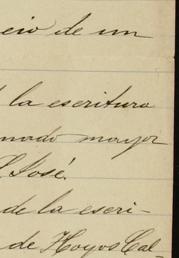 cio de un
la escritura
nado mayor
José.
de la escri-
de Hoyos Cal-